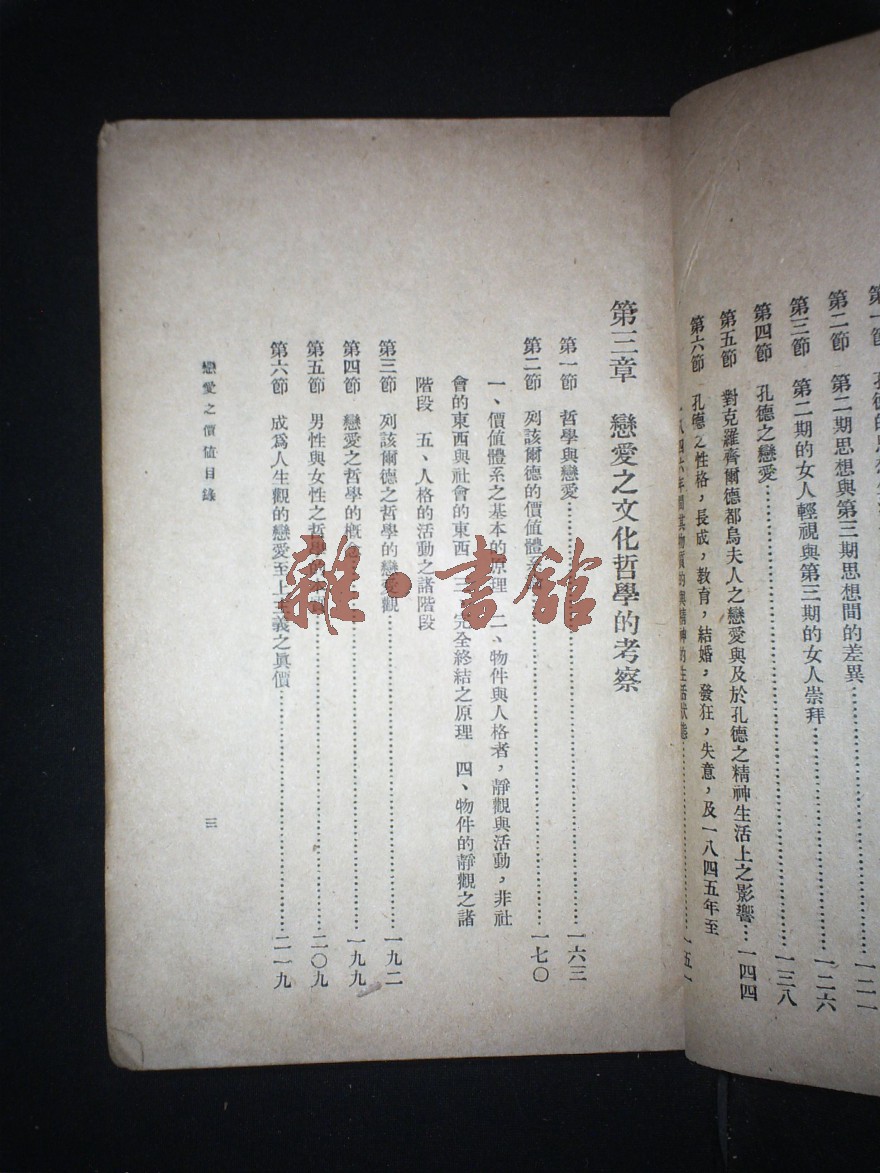 第二節 第二期思想與第三期思想間的差異
第三節 第二期的女人輕視與第三期的女人崇拜……一二六
第四節 孔德之戀愛……一三八
第五節 對克羅齊爾德都烏夫人之戀愛與及於孔德之精神生活上之影響…一四四
第六節 孔德之性格，長成，教育，結婚，發狂，失意，及一八四五年至
一八四六年間其物質的與精神的生活狀態……一五一
第三章 戀愛之文化哲學的考察
第一節 哲學與戀愛……一六三
第二節 列該爾德的價值體系……一七〇
一、價值體系之基本的原理 二、物件與人格者，靜觀與活動，非社
會的東西與社會的東西 三、完全終結之原理 四、物件的靜觀之諸
階段 五、人格的活動之諸階段
第三節 列該爾德之哲學的戀愛觀……一九二
第四節 戀愛之哲學的概念……一九九
第五節 男性與女性之哲學……二〇九
第六節 成爲人生觀的戀愛至上主義之眞價……二一九
戀愛之價値目錄
三
雜·書館